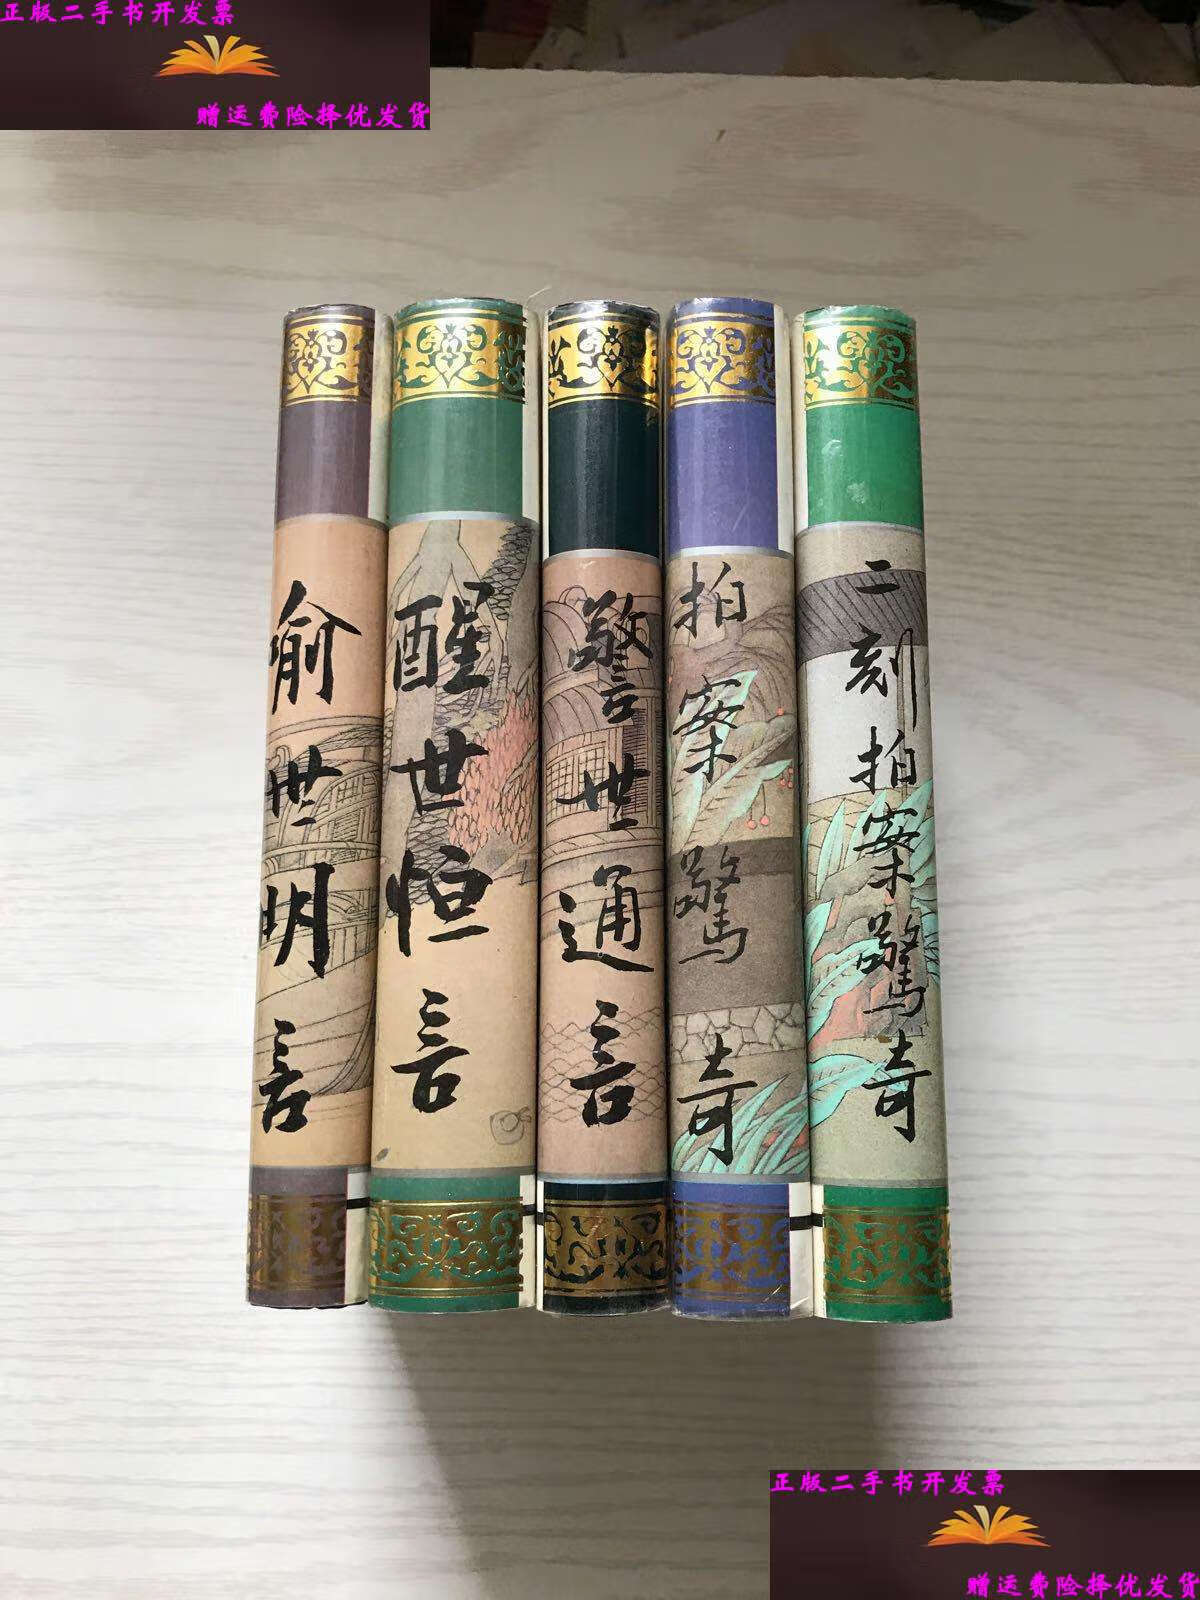 正版二手书开发票
赠运费险择优发货
喻世明言
醒世恒言
警世通言
拍案驚奇
二刻拍案驚奇
正版二手书开发票
赠运费险择优发货